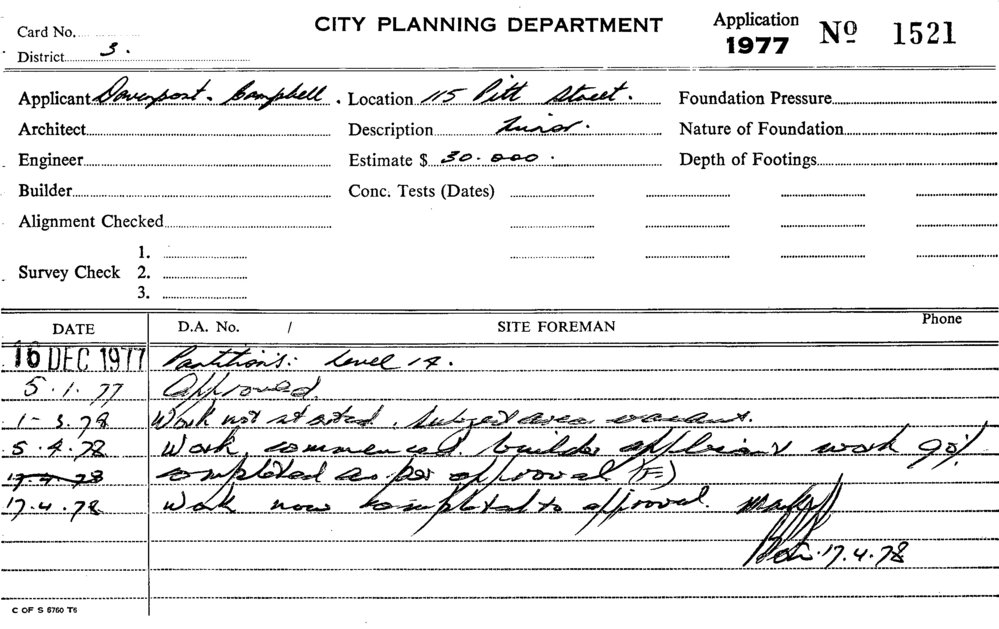 Card No.
CITY PLANNING DEPARTMENT
Application 1977 No 1521
District 3.
Applicant Davenport. Campbell. Location 115 Pitt Street. Foundation Pressure
Architect Description Minor. Nature of Foundation
Engineer Estimate $ 30.000. Depth of Footings
Builder Conc. Tests (Dates)
Alignment Checked
1.
Survey Check 2.
3.
DATE D.A. No. / SITE FOREMAN Phone
16 DEC 1977 Partitions: Level 14.
5.1.77 Approved.
1-3.78 Work not started. Subject area vacant.
5.4.78 Work commenced. builder work 90%
17.4.78 completed as per approval (F)
17.4.78 Work now completed to approval.
17.4.78
C OF S 6760 T6